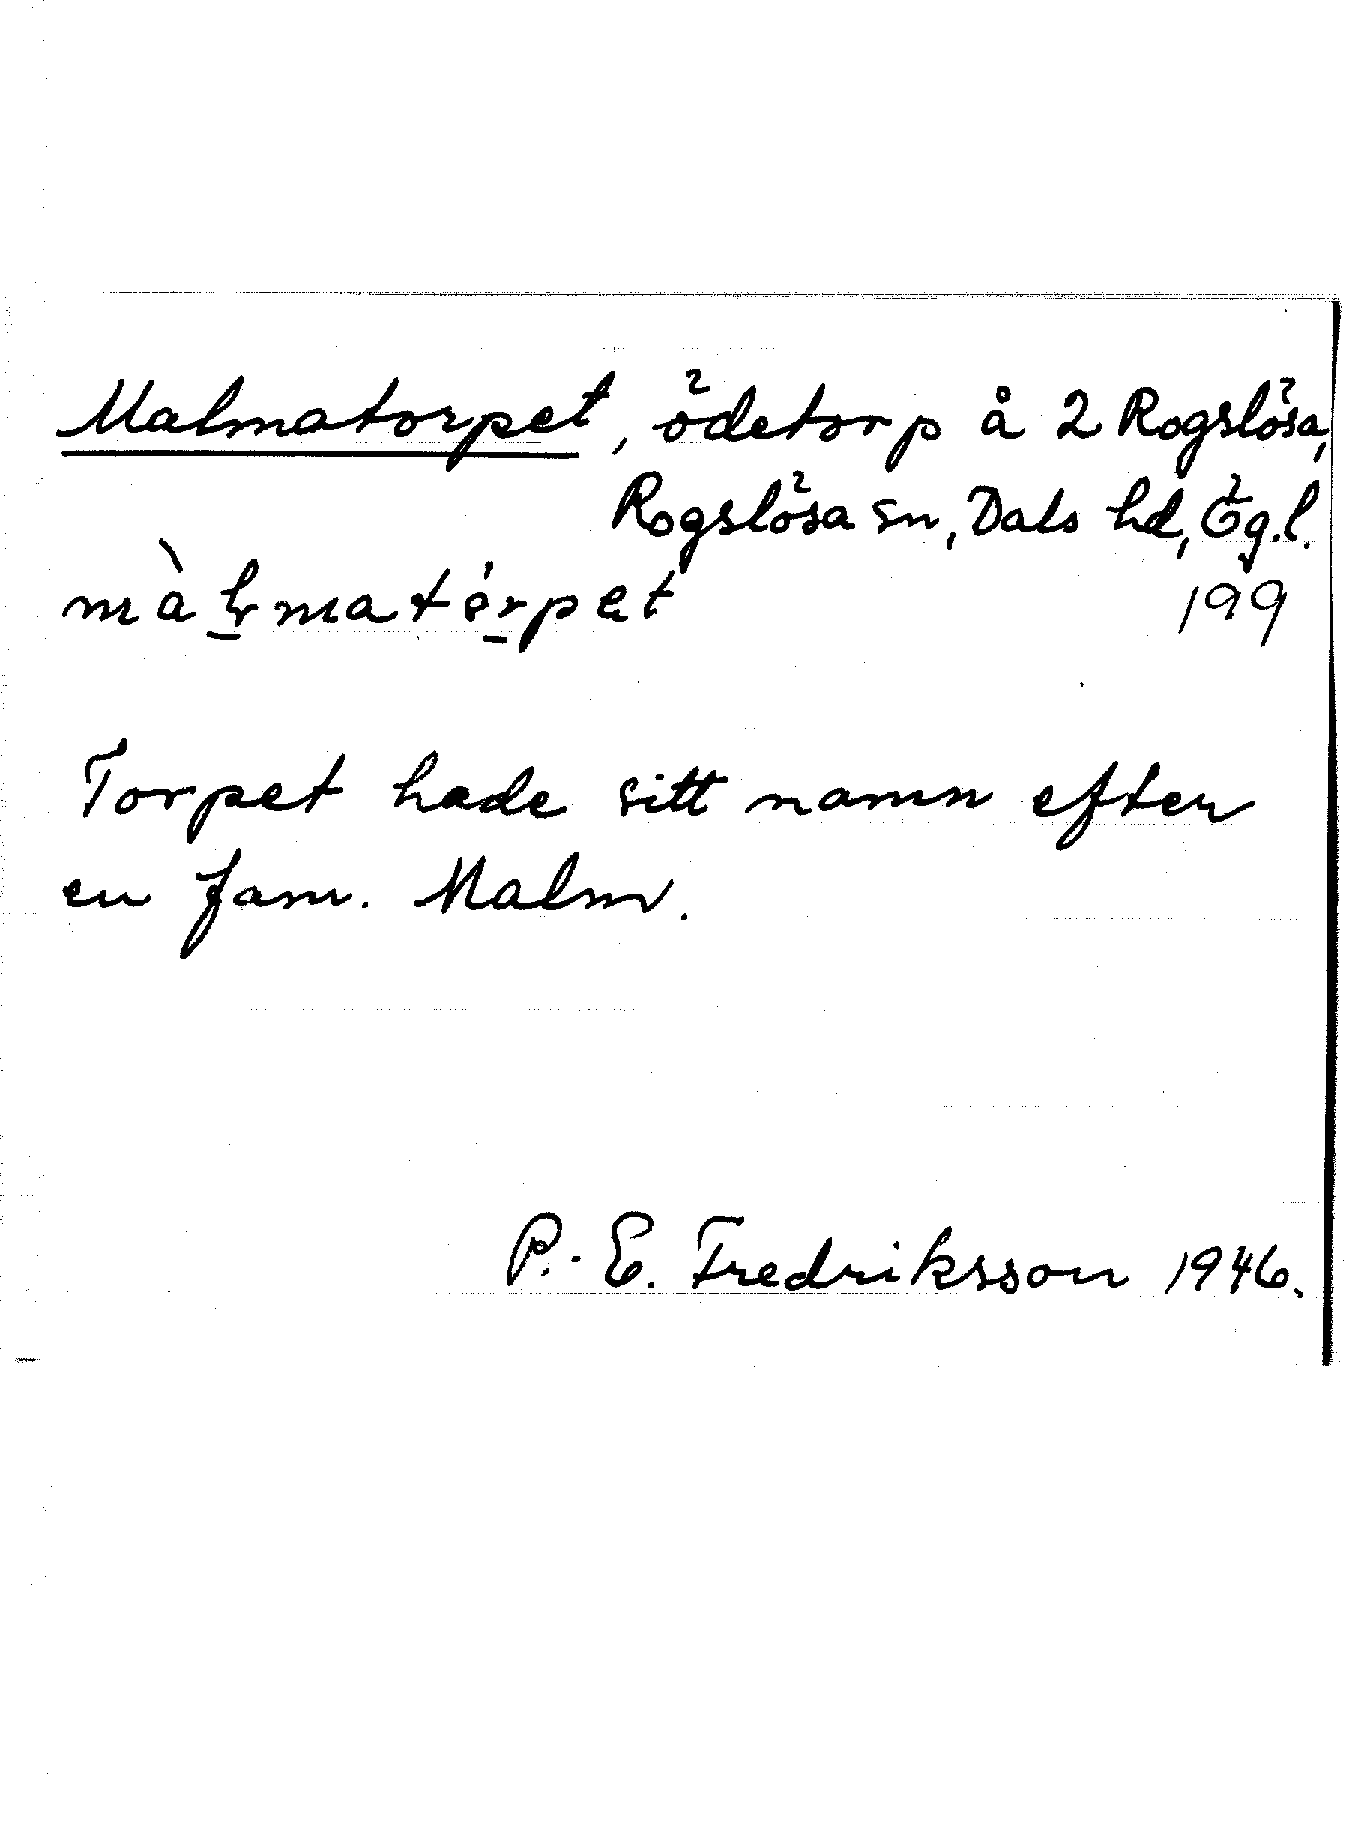 Malmatorpet, ödetorp å 2 Rogslösa,
Rogslösa sn, Dals hd, Ög.l.
199
Torpet hade sitt namn efter
en fam. Malm.
P.-E. Fredriksson 1946.